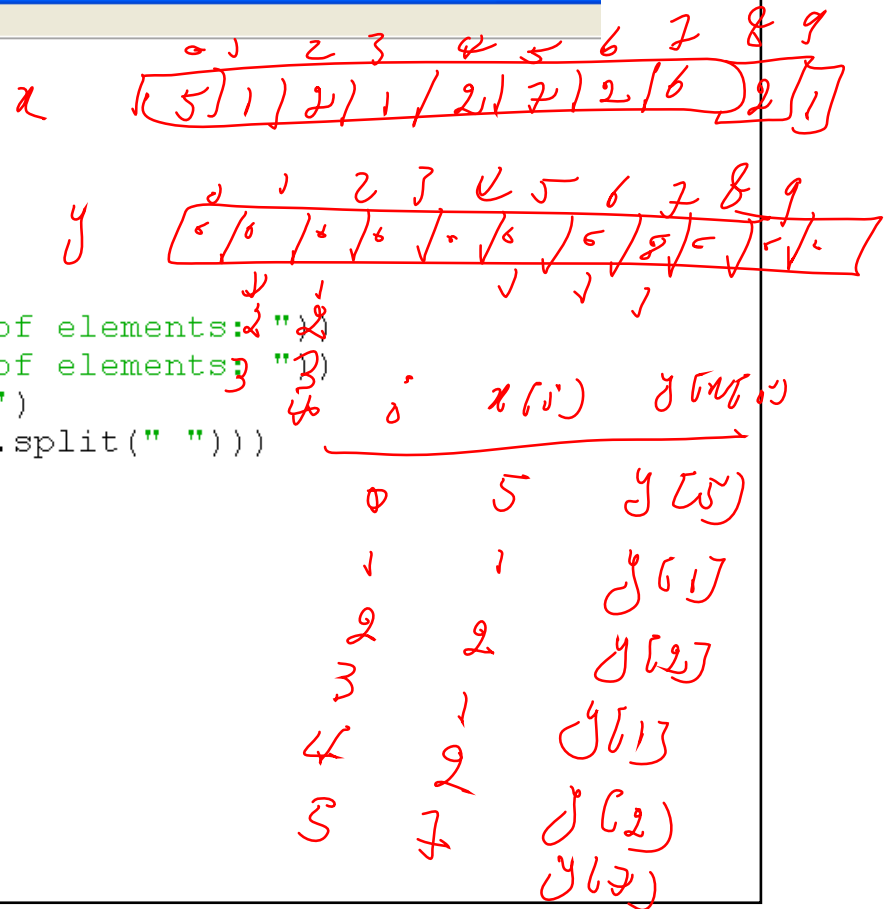 0 1 2 3 4 5 6 7 8 9
x 5 1 2 1 2 7 2 6 2 1
0 1 2 3 4 5 6 7 8 9
y
of elements: "))
of elements: "))
")
.split(" ")))
2 2
3 3
4
i x[i] y[x[i]]
0 5 y[5]
1 1 y[1]
2 2 y[2]
3 1 y[1]
4 2 y[2]
5 7 y[7]